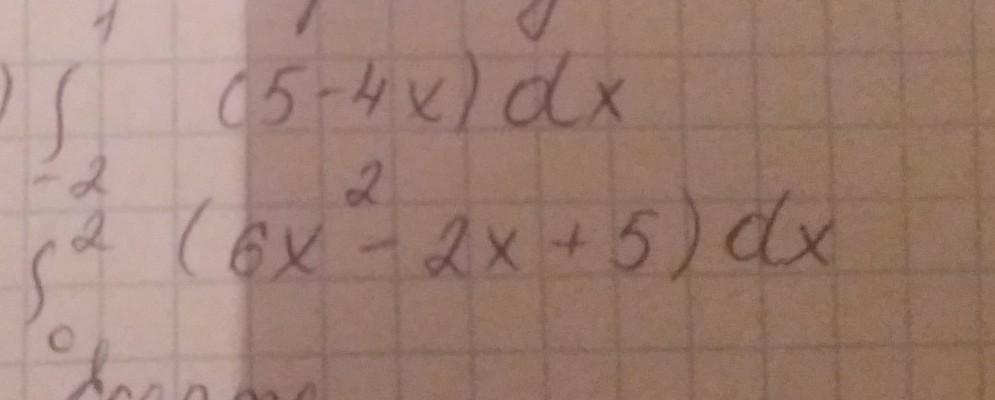 ) ∫₋₂ (5-4x)dx
∫₀² (6x²-2x+5)dx